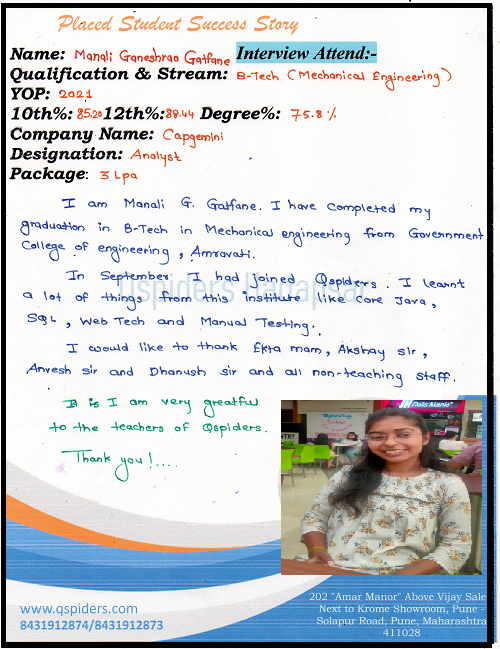 Placed Student Success Story
Name: Manali Ganeshrao Gatfane Interview Attend:-
Qualification & Stream: B-Tech (Mechanical Engineering)
YOP: 2021
10th%: 85.20 12th%: 88.44 Degree%: 75.8%
Company Name: Capgemini
Designation: Analyst
Package: 3 Lpa
I am Manali G. Gatfane. I have completed my
graduation in B-Tech in Mechanical engineering from Government
College of engineering, Amravati.
In September I had joined Qspiders. I learnt
a lot of things from this institute like core Java,
SQL, Web Tech and Manual Testing.
I would like to thank Ekta mam, Akshay sir,
Anvesh sir and Dhanush sir and all non-teaching staff.
I am very greatful
to the teachers of Qspiders.
Thank you!....
Qspiders Hadapsar
www.qspiders.com
8431912874/8431912873
202 "Amar Manor" Above Vijay Sale
Next to Krome Showroom, Pune -
Solapur Road, Pune, Maharashtra
411028